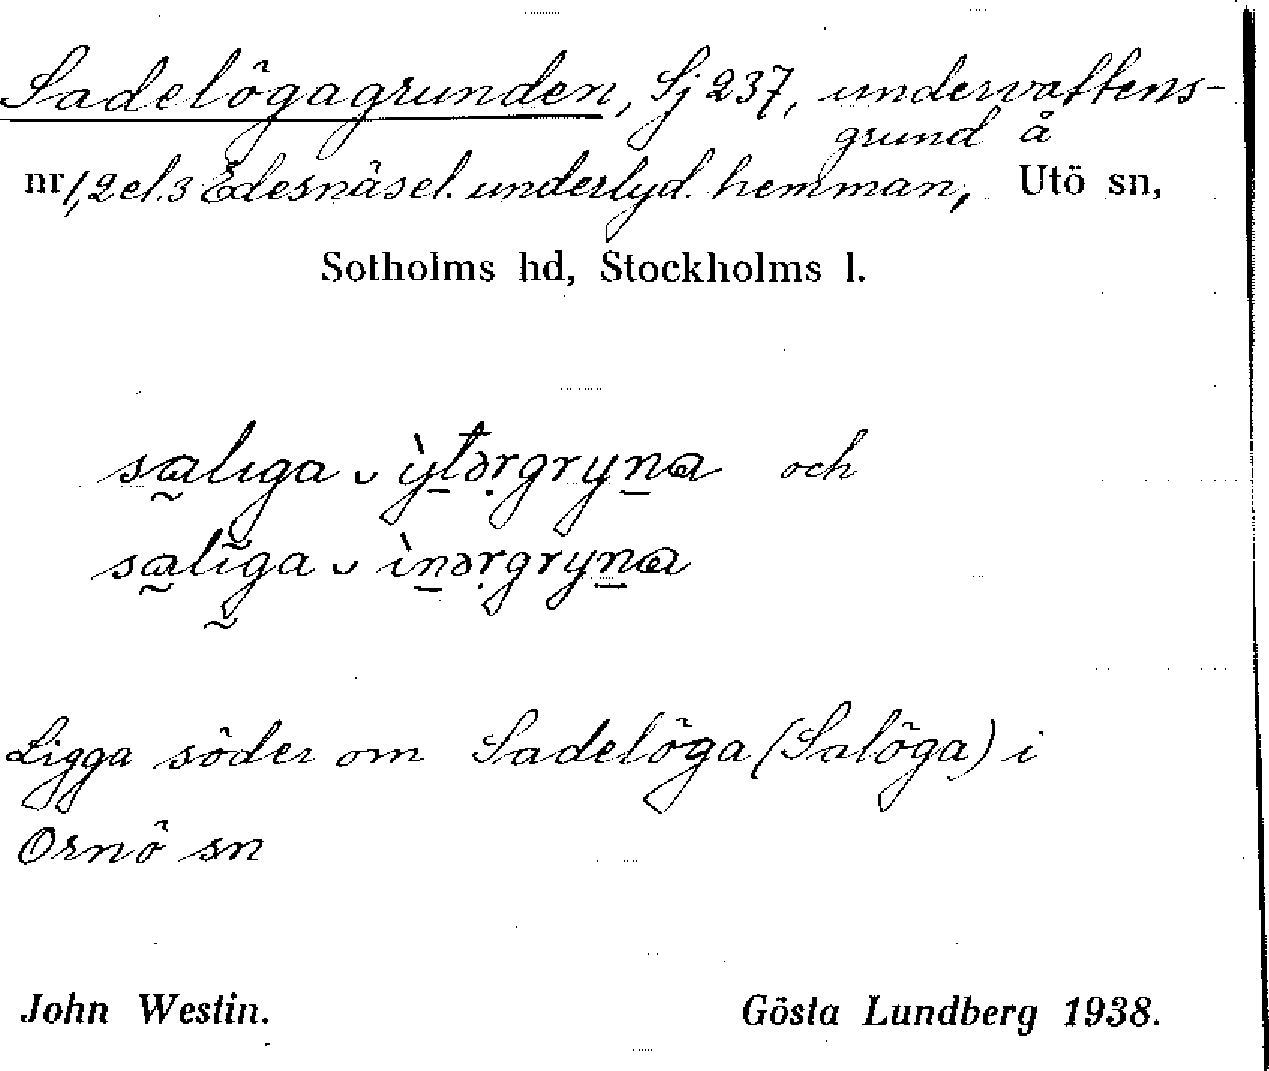 Sadelögagrunden, Sj 237, undervattens-
grund å
nr 1, 2 el. 3 Edesnäs el. underlyd. hemman, Utö sn,
Sotholms hd, Stockholms l.
salıga ᴗ ỳtərgryna och
salıga ᴗ ìnərgryna
Ligga söder om Sadelöga (Salöga) i
Ornö sn
John Westin. Gösta Lundberg 1938.